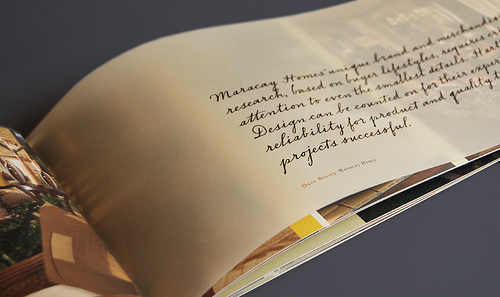 Maracay Homes' unique brand and merchandi
research, based on buyer lifestyles, requires
attention to even the smallest details. Har
Design can be counted on for their expe
reliability for product and quality
projects successful.
Dave Beasey Maracay Homes